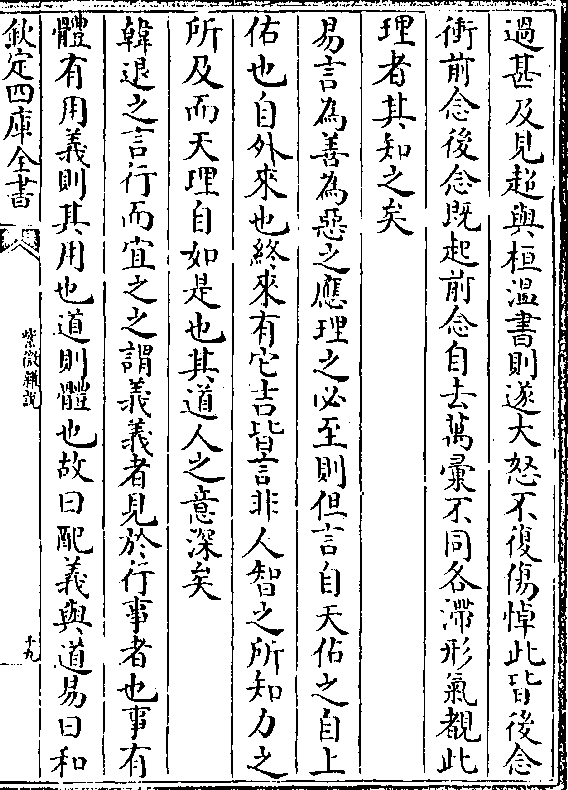 過甚及見超與桓溫書則遂大怒不復傷悼此皆後念
衝前念後念既起前念自去萬彙不同各滯形氣覩此
理者其知之矣
易言為善為惡之應理之必至則但言自天佑之自上
佑也自外來也終來有它吉皆言非人智之所知力之
所及而天理自如是也其道人之意深矣
韓退之言行而宜之之謂義義者見於行事者也事有
體有用義則其用也道則體也故曰配義與道易曰和
欽定四庫全書
紫微雜說
十九